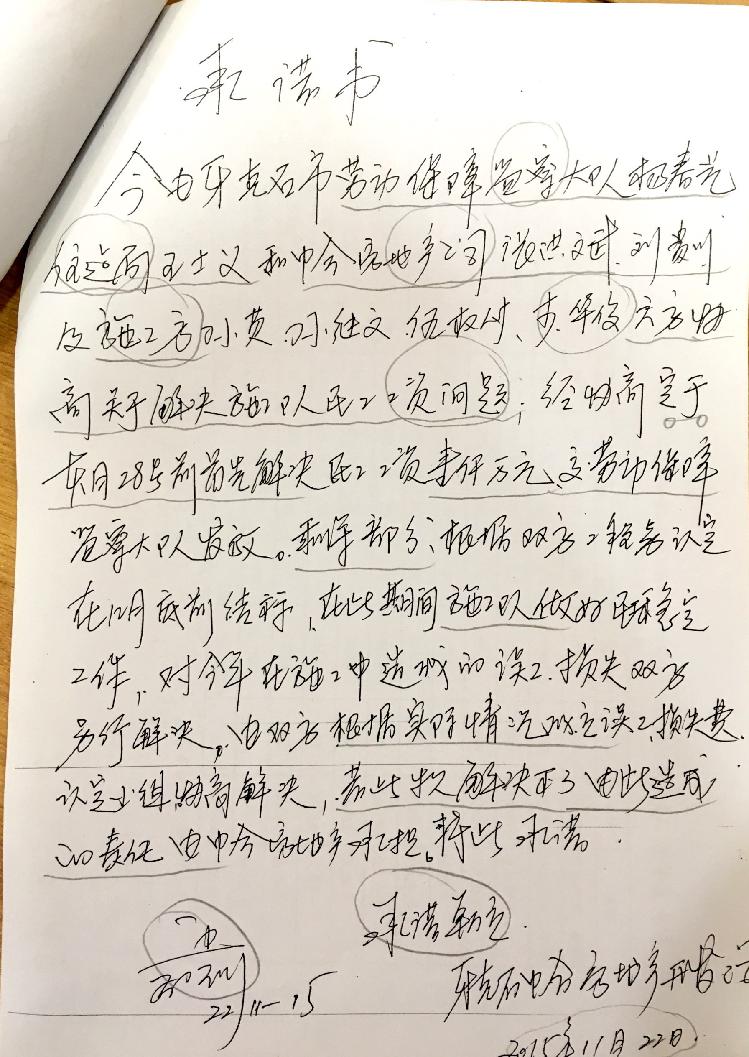 承诺书
今由牙克石市劳动保障监察大队杨春光
任志尚 王士义和中合房地产公司 张洪文武、刘贵川
及施工方 孙黄 孙继文 伍权时、李华俊六方协
商关于解决施工队民工工资问题；经协商定于
本月28号前首先解决民工工资壹仟万元、交劳动保障
监察大队发放。剩余部分、根据双方工程务认定
在12月底前结辩，在此期间施工队做好民工稳定
工作，对今年在施工中造成的误工、损失双方
另行解决，由双方根据实际情况成立误工、损失费
认定小组协商解决，若此次解决不了由此造成
的责任由中合房地产承担。特此承诺
承诺
牙克石中合房地产
22/11-15
2015年11月22日